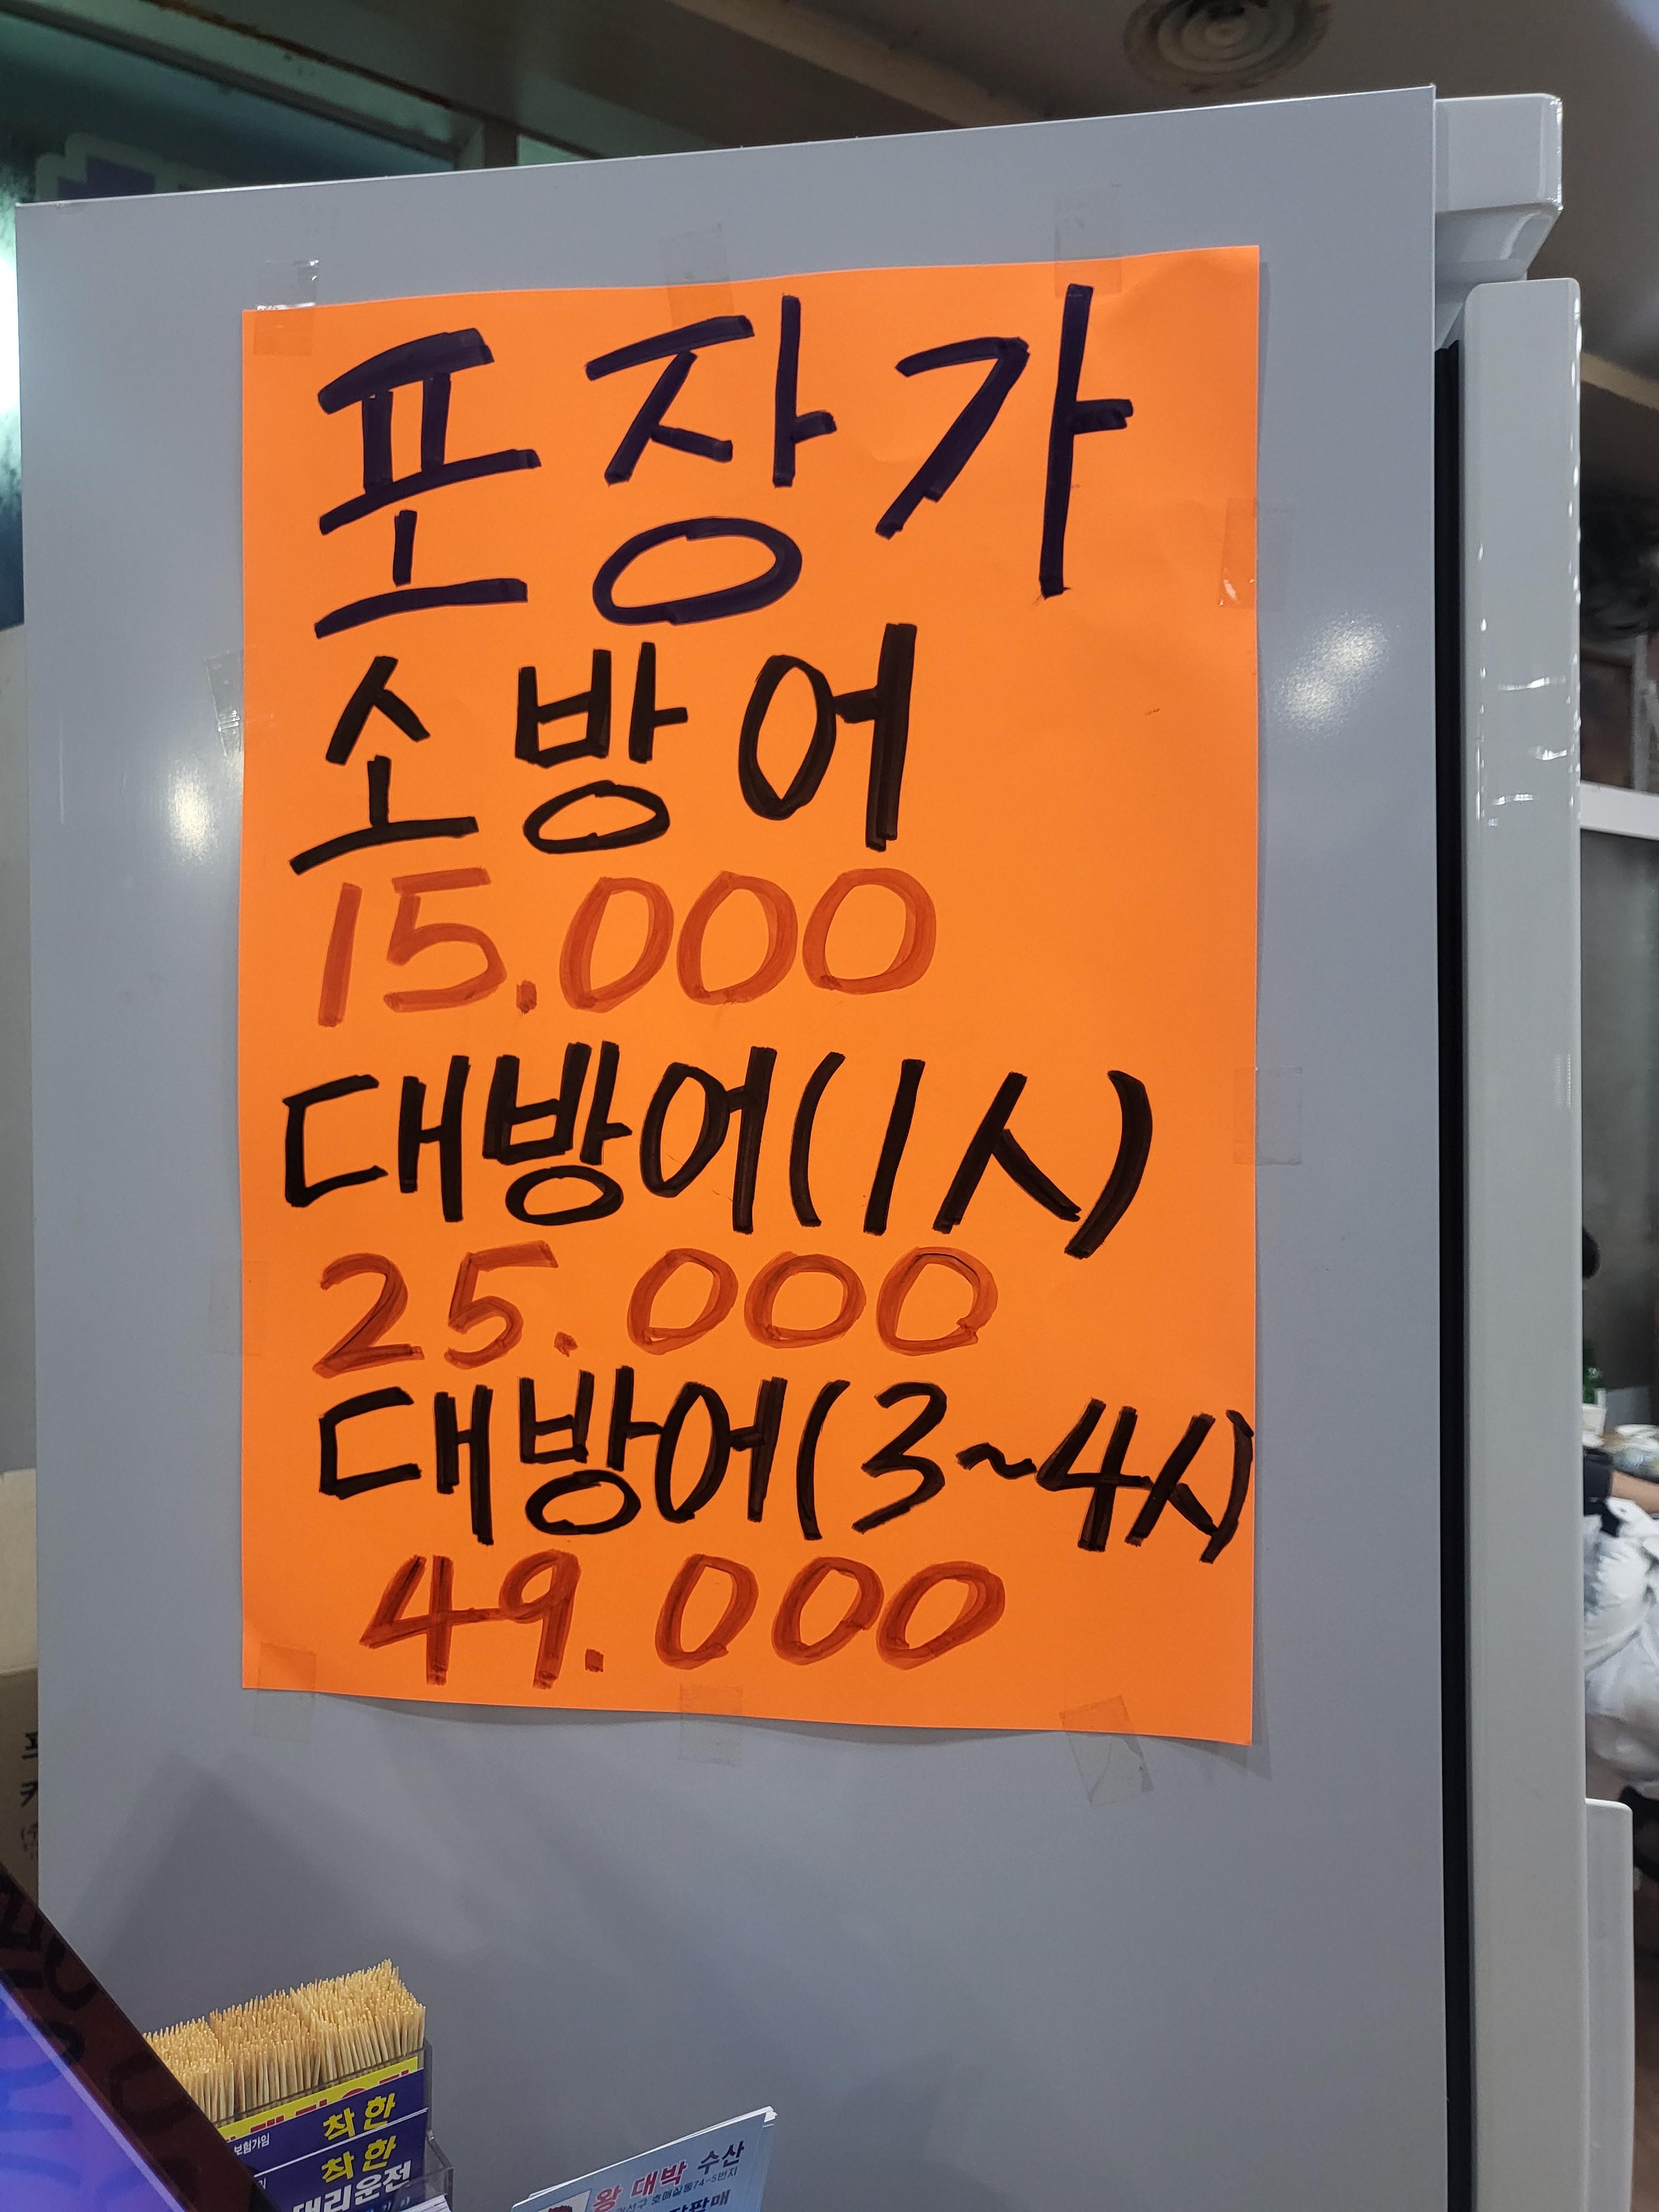 포장가
소방어
15.000
대방어(1人)
25.000
대방어(3~4人)
49.000
착한
보험가입
착한
대리운전
왕 대박 수산
호매실동74-5번지
판매